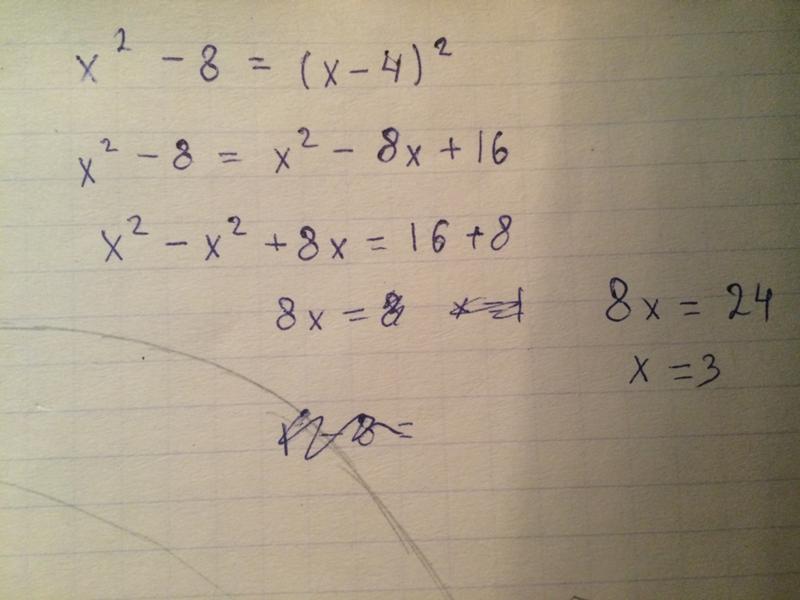 x² - 8 = (x - 4)²
x² - 8 = x² - 8x + 16
x² - x² + 8x = 16 + 8
8x = 8x = 24
x = 3